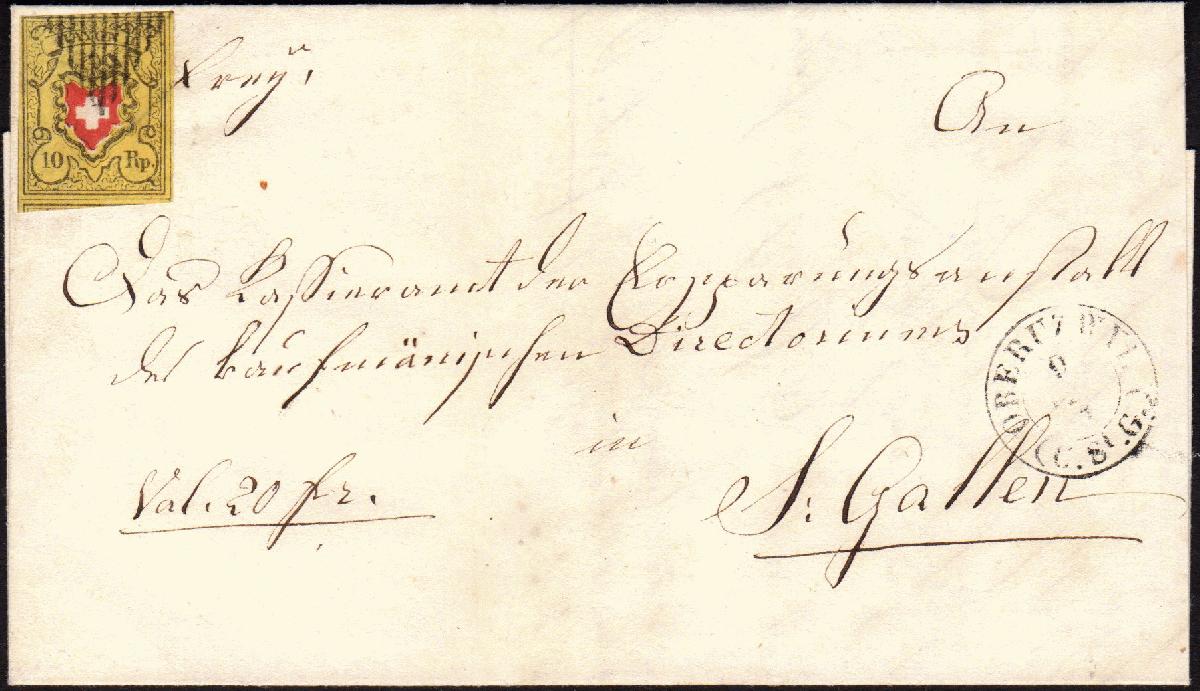 10 Rp.
An
Das Kassieramt der Ersparungsanstalt
des kaufmänischen Directoriums
in
S: Gallen
Val. 20 fr.
OBERUTZWYL
9
(C. St. G.)